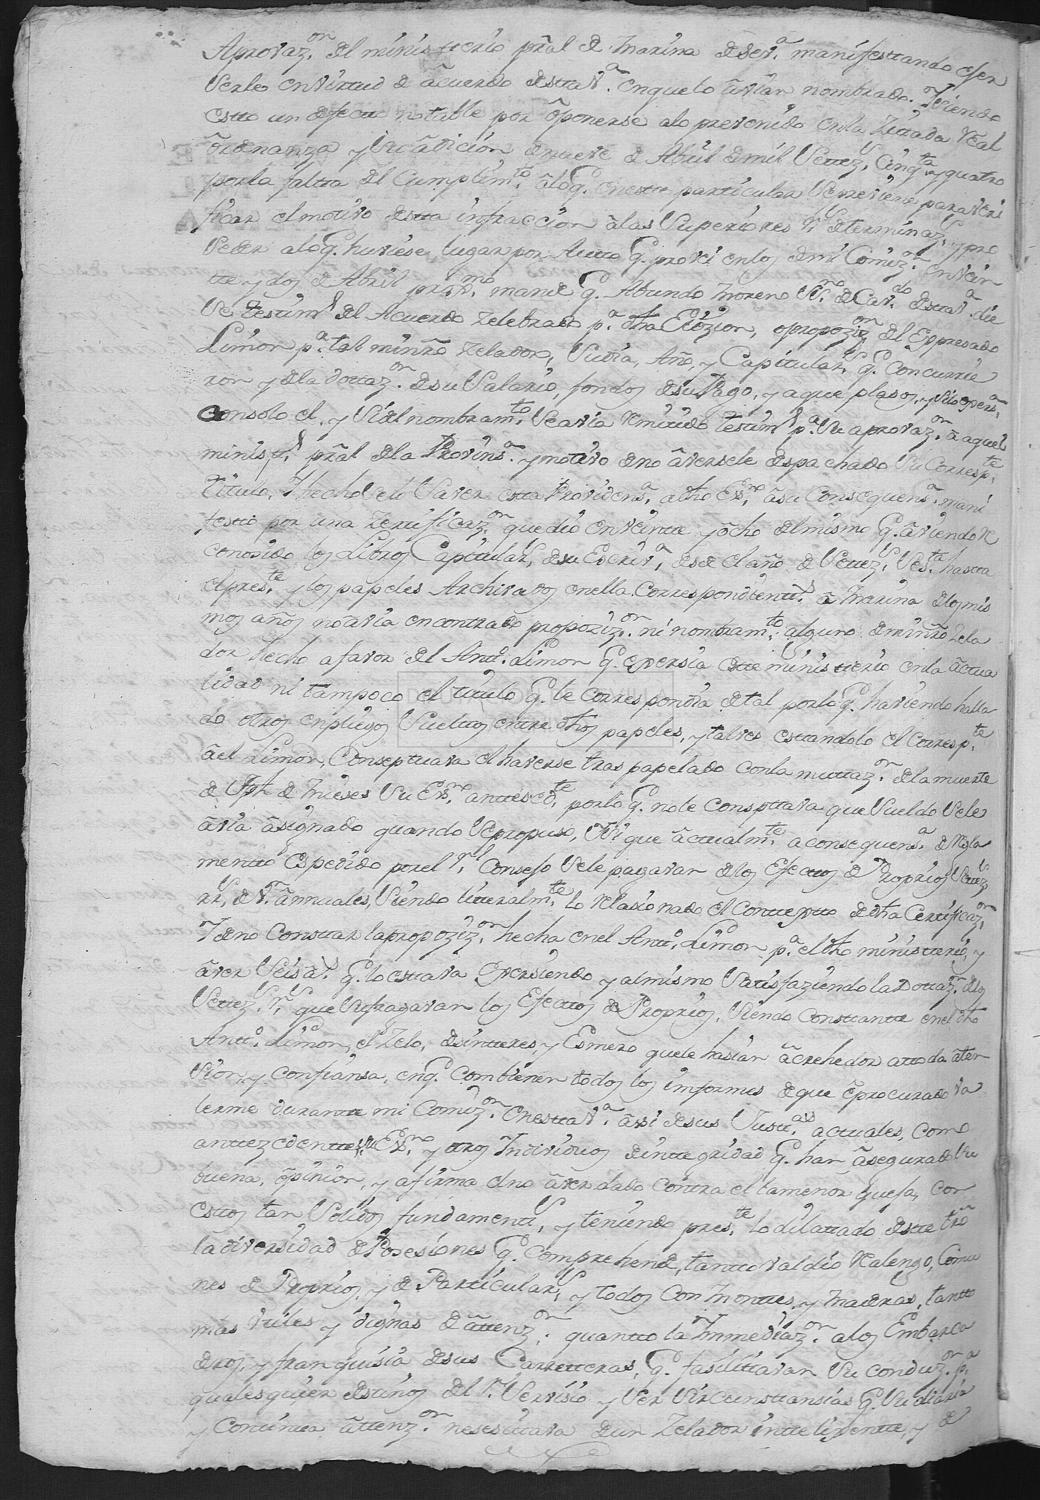 Aprovaz.on del ministterio pral de Marina de Sev.a manifestando eser
Verlo en virtud de acuerdo desta V.a en que lo avian nombrado. Y siendo
esto un defecto notable por oponerse alo prevenido en la zitada Real
ordenanza y su adición de nueve de Abril de mil Settez.s Cinq.ta y quatro
por la falta del Cumplim.to alo q. en este particular se previene para veri
ficar el motivo desta infracción a las Superiores R.s determinaz.s y pro
seder alo q. huviese lugar por Auto q. proveí en los de mi Comiz.on en vein
te y dos de Abril pr.mo mandé q. Abundo Moreno SS.no de Cav.do desta V.a die
se testim.o del Acuerdo zelebrado p.a dha Elezion, o propoziz.on del Expresado
Limon p.a tal minro zelador, su dia, Año, y Capitulares q. concurrie
ron y dela dottaz.on de su Salario, fondos de su Pago, y a que plasos, y si lo opera.
con solo el, y si del nombram.to se avia remitido testim.o p.a su aprovaz.on a aquel
minist.o pral dela Provins.a y motivo de no aversele despachado su Corresp.te
título, Y hecho sele saver esta Providens.a a dho Es.no a su consequens.a mani
festó por una zertificaz.on que dió en veinte y ocho del mismo q. aviendo re
conosido los Libros Capitulares de su Escriv.a desde el año de Settez.s Ses.ta hasta
el pres.te y los papeles Archivados en ella Correspondientes a Marina de los mis
mos años no avia encontrado propoziz.on ni nombram.to alguno de minro zela
dor hecho a favor del Antt.o Limon q. exersia este ministterio en la actua
lidad ni tampoco el titulo q. le correspondía de tal por lo q. haviendo halla
do otros en pliegos sueltos entre dhos papeles, y tal ves estandolo el corresp.te
a el Limon, Conseptuava el haverse tras papelado con la muttaz.on de la muerte
de Jph de Mieses su Es.no anttesed.te, por lo q. no le consptava que sueldo se le
avia asignado quando se propuso, Ni que actualm.te a consequens.a de Regla
mentto Espedido por el R.l Consejo se le pagavan delos Efectos de Proprios Settez.s
r.s de v.n annuales, Siendo litteralm.te lo relasionado el Conttexto de dha Certificaz.on
Y de no constar la propoziz.on hecha en el Antt.o Limon p.a el dho ministerio, y
aver seis a.s q. lo estava exersiendo, y al mismo satisfaziendo la Dottaz.on delos
Settez.s r.s que sufragavan los Efectos de Proprios, Siendo Constante en el dho
Antt.o Limon, el Zelo, desinteres, y Esmero que le hasian acrehedor a toda aten
sion, y confiansa, en q. combienen todos los informes de que e procurado va
lerme durante mi Comiz.on en esta V.a asi de sus Justt.as actuales, como
anttezedentes Es.no y otros Individuos de integridad q. han asegurado su
buena opinion, y afirma de no aver dado contra el la menor quexa, con
estos tan solidos fundamentos, y teniendo pres.te lo dilatado deste trno
la diversidad de Posesiones q. comprehende, tanto valdio Realengo, Comu
nes de Proprios, y de Particulares, y todos con montes, y maderas, tanto
mas utiles y dignas de attenz.on quantto la Immediaz.on a los Embarca
deros, y franquisia de sus Carretteras, q. fasilitavan su conduz.on p.a
qualesquier destinos del R.l servisio, y ser sircunstansias q. su diaria
y Continua attenz.on nesesitava de un Zelador inteligente, y de